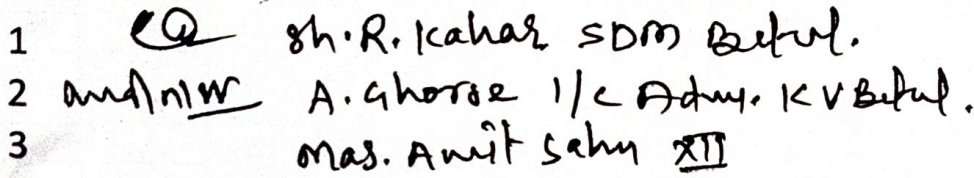 1 Sh. R. Kahar SDM Betul.
2 A. Ghorse I/C Admn. KV Betul.
3 Mas. Amit Sahu XII